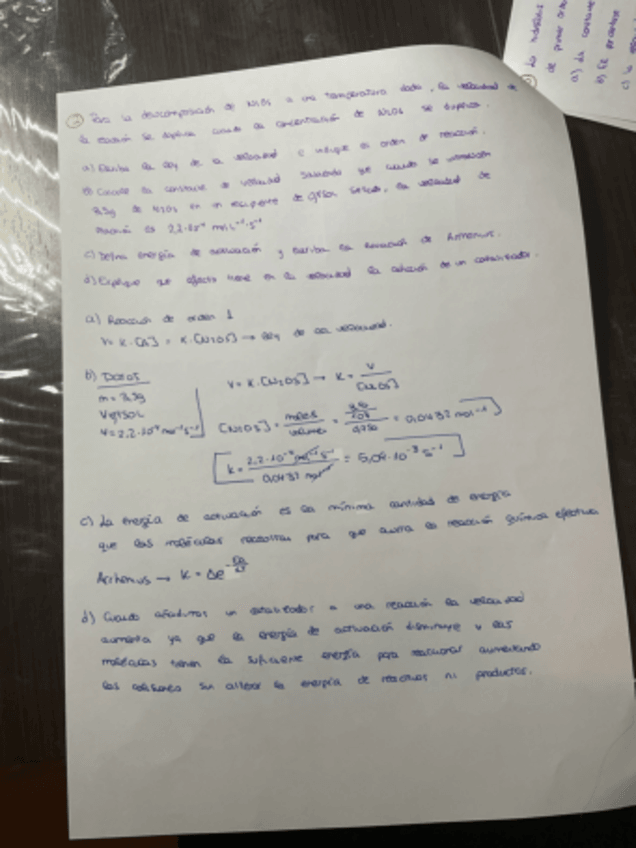 ② Para la descomposición de N2O5 a una temperatura dada, la velocidad de
la reacción se duplica cuando la concentración de N2O5 se duplica.
a) Escriba la ley de la velocidad e indique el orden de reacción.
b) Calcule la constante de velocidad sabiendo que cuando se introducen
de N2O5 en un recipiente de la velocidad de
reacción es 2,2·10⁻⁴ mol·L⁻¹·s⁻¹
c) Defina energía de activación y escriba la ecuación de Arrhenius.
d) Explique que efecto tiene en la velocidad la adición de un catalizador.
a) Reacción de orden 1
V = K·[A] = K·[N2O5] → ley de la velocidad.
b) Datos
V = K·[N2O5] → K = V / [N2O5]
[N2O5] = moles / volumen =
c) La energía de activación es la mínima cantidad de energía
que las moléculas necesitan para que ocurra la reacción química efectiva
Arrhenius → K = Ae
d) Cuando añadimos un catalizador a una reacción la velocidad
aumenta ya que la energía de activación disminuye y las
moléculas tienen la suficiente energía para reaccionar aumentando
las colisiones sin alterar la energía de reactivos ni productos.
La hidrólisis
de primer orden
a) La constante
b) El porcentaje
c) la